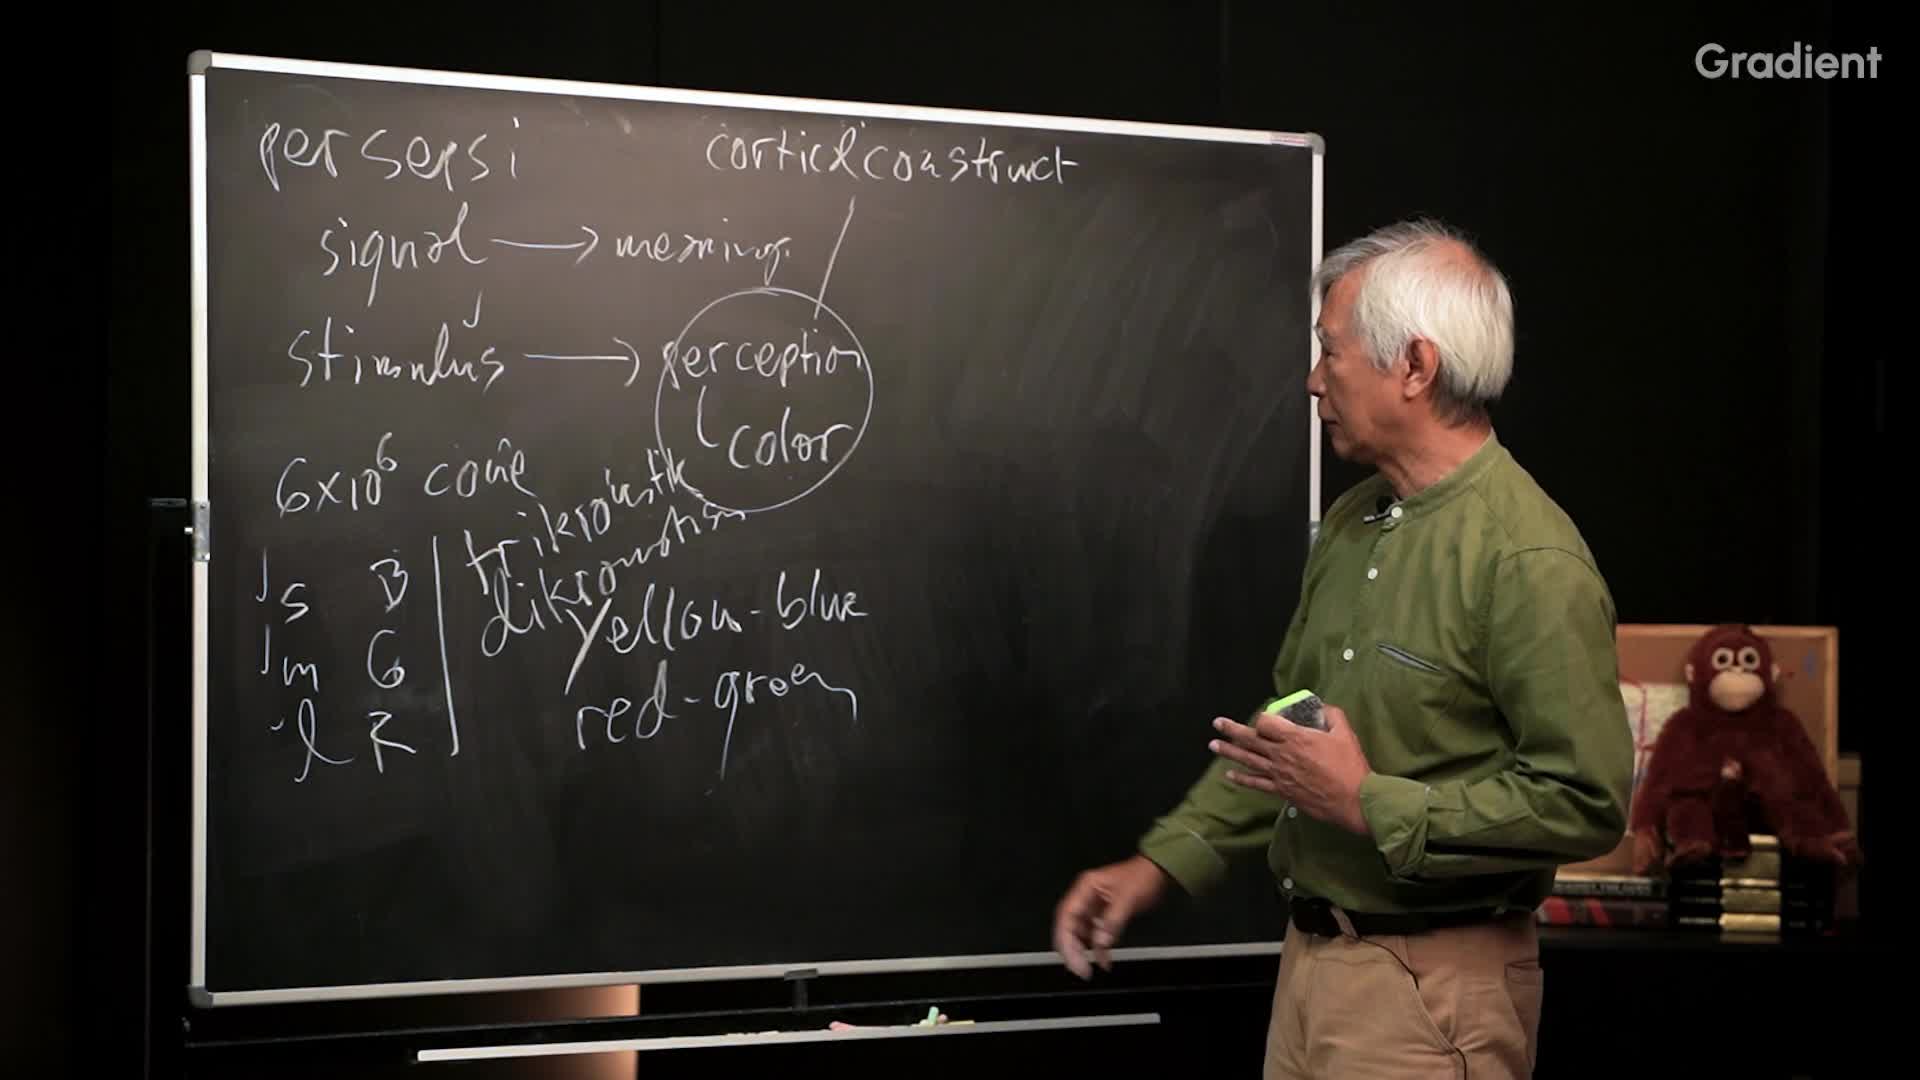 Gradient
persepsi
corticl construct
signal → meaning
stimulus → perception
color
6x10⁶ cone
trikromatik
dikromatism
s B
m G
l R
yellow-blue
red-green